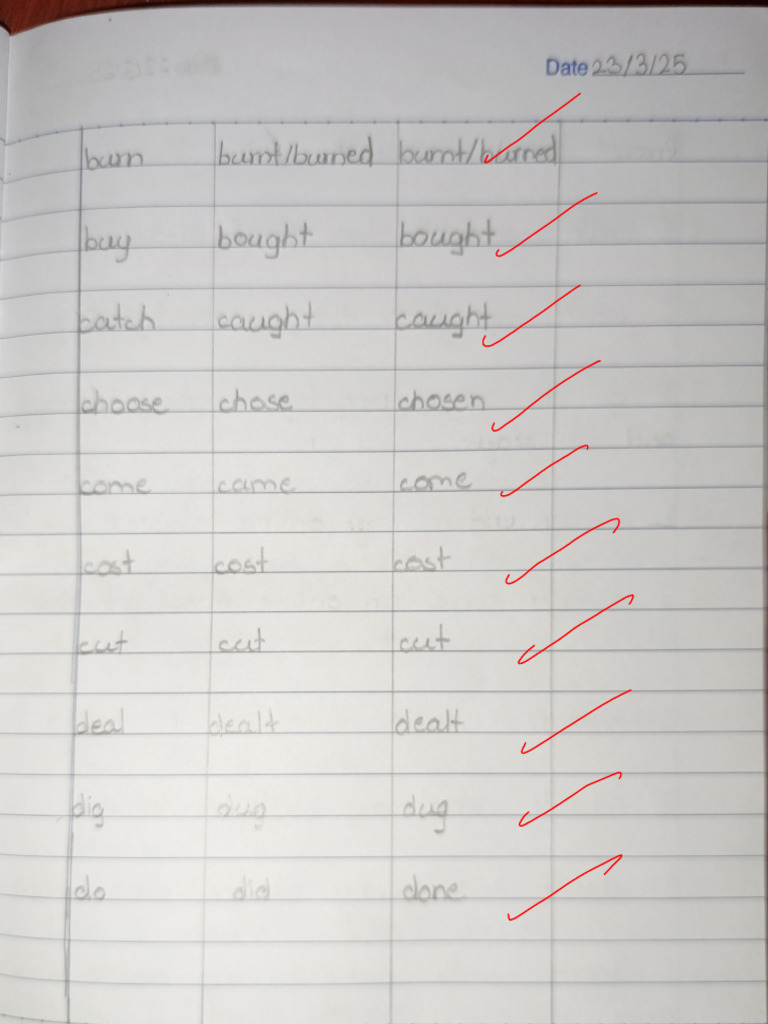 Date 23/3/25
burn burnt/burned burnt/burned
buy bought bought
catch caught caught
choose chose chosen
come came come
cost cost cost
cut cut cut
deal dealt dealt
dig dug dug
do did done